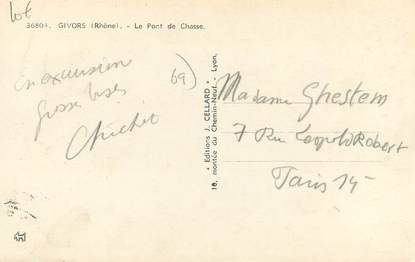 lot
36804. GIVORS (Rhône). - Le Pont de Chasse.
En excursion
grosses bises
69)
* Editions J. CELLARD *
18, montée du Chemin-Neuf. - Lyon.
Madame Ghestem
7 Rue Leopold Robert
Paris 14